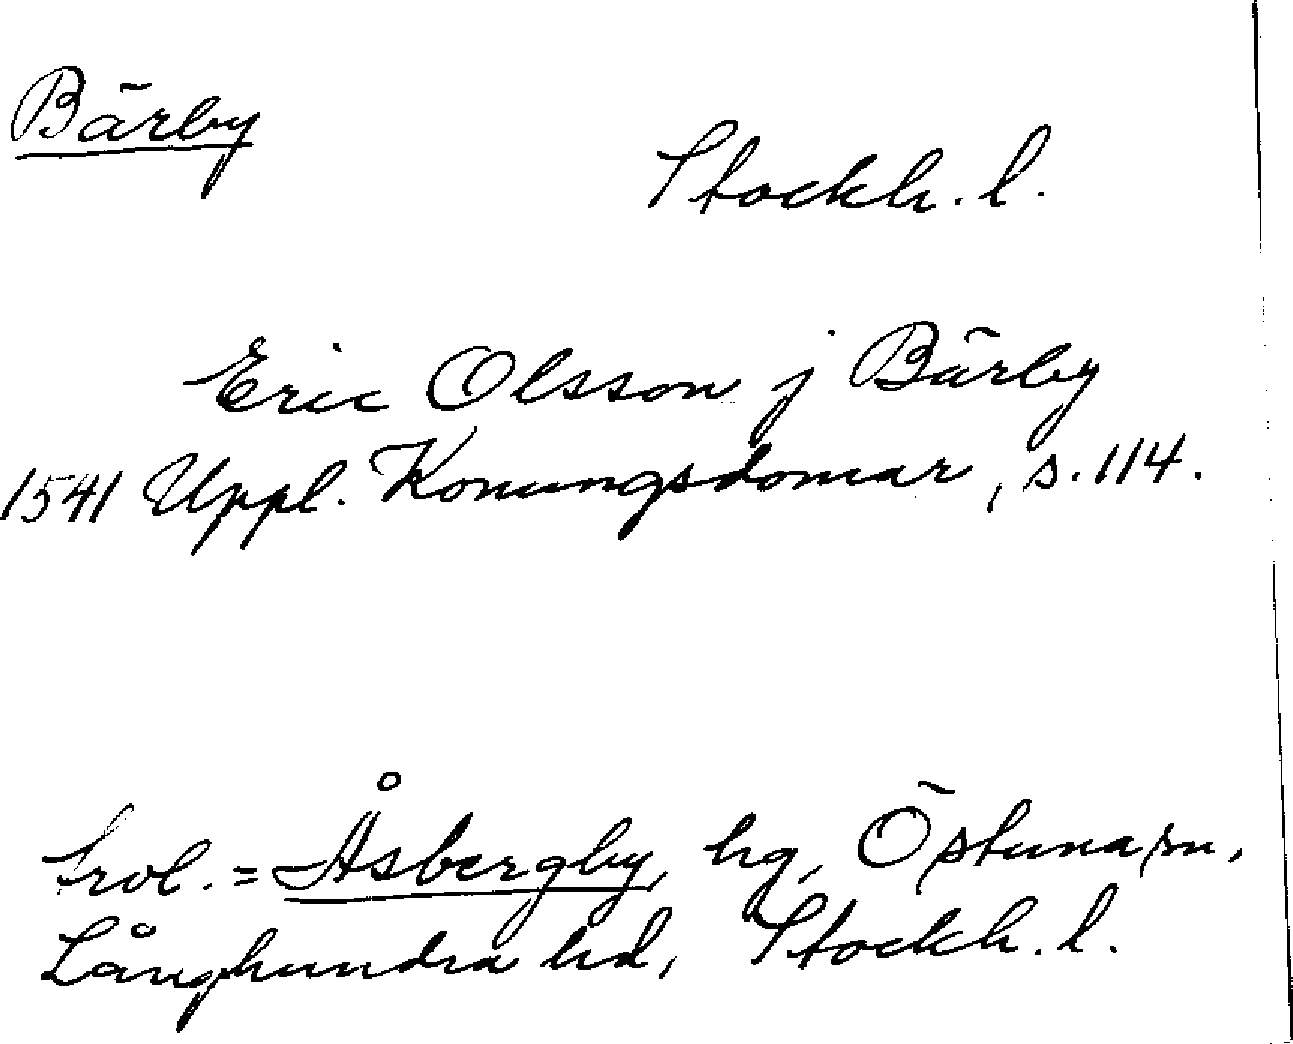 Bärby
Stockh. l.
Eric Olsson j Bärby
1541 Uppl. Konungsdomar, s. 114.
Trol. = Åsbergby, hg, Östuna sn,
Långhundra hd, Stockh. l.